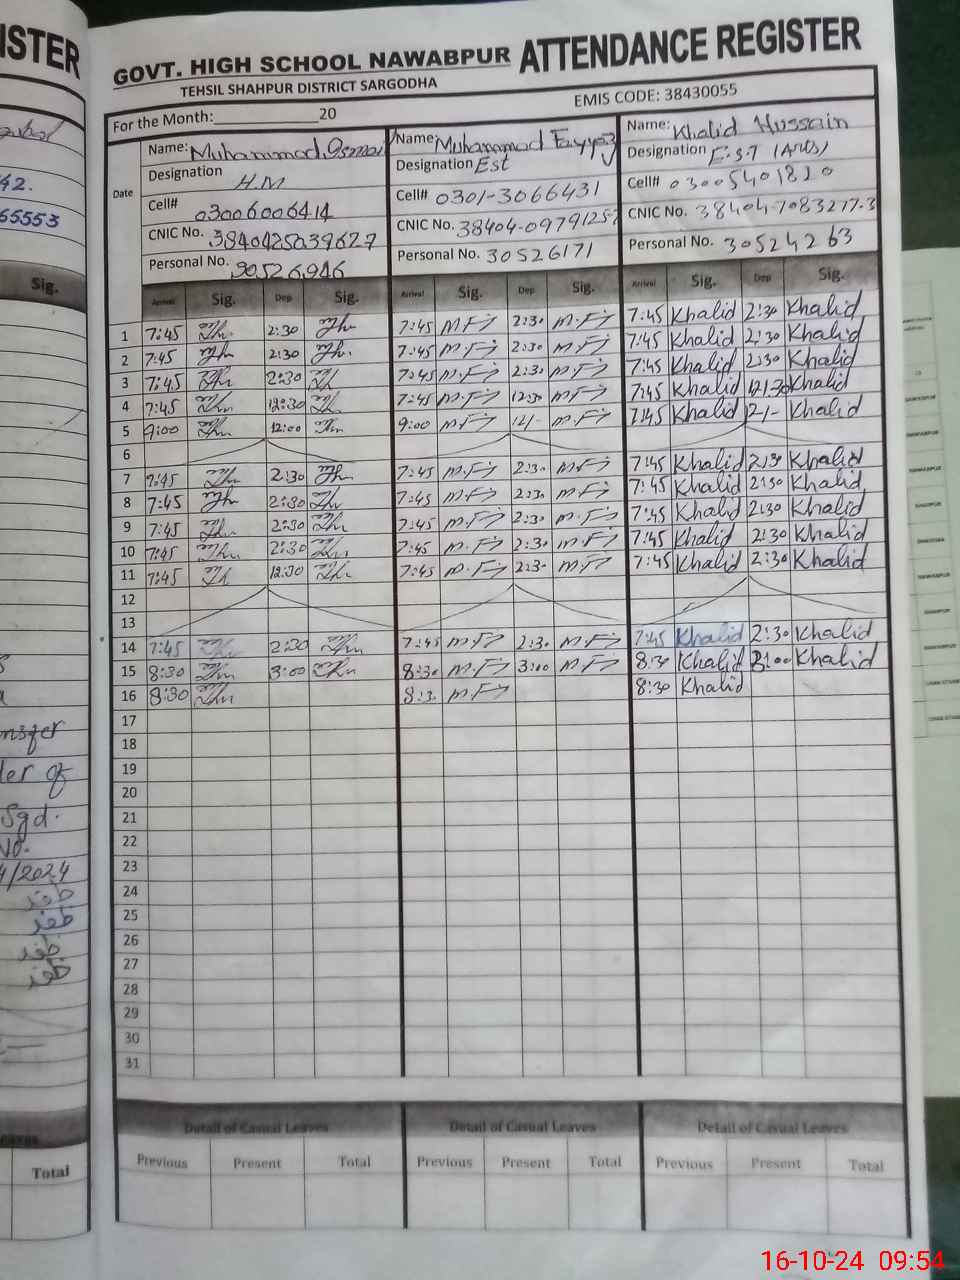 ISTER
GOVT. HIGH SCHOOL NAWABPUR ATTENDANCE REGISTER
TEHSIL SHAHPUR DISTRICT SARGODHA
EMIS CODE: 38430055
For the Month: 20
Date
Name: Muhammad
Designation H.M
Cell# 03006006414
CNIC No. 3840425039627
Personal No. 30526946
Name: Muhammad Fayyaz
Designation Est
Cell# 0301-3066431
CNIC No. 38404-0979125-
Personal No. 30526171
Name: Khalid Hussain
Designation E.S.T
Cell# 03005401820
CNIC No. 38404-7083277-3
Personal No. 30524263
Arrival Sig. Dep Sig. Arrival Sig. Dep Sig. Arrival Sig. Dep Sig.
1 7:45 2:30 7:45 M.F 2:30 M.F 7:45 Khalid 2:30 Khalid
2 7:45 2:30 7:45 M.F 2:30 M.F 7:45 Khalid 2:30 Khalid
3 7:45 2:30 7:45 M.F 2:30 M.F 7:45 Khalid 2:30 Khalid
4 7:45 12:30 7:45 M.F 12:30 M.F 7:45 Khalid 12:30 Khalid
5 9:00 12:00 9:00 M.F 12/- M.F 7:45 Khalid 12/- Khalid
6
7 7:45 2:30 7:45 M.F 2:30 M.F 7:45 Khalid 2:30 Khalid
8 7:45 2:30 7:45 M.F 2:30 M.F 7:45 Khalid 2:30 Khalid
9 7:45 2:30 7:45 M.F 2:30 M.F 7:45 Khalid 2:30 Khalid
10 7:45 2:30 7:45 M.F 2:30 M.F 7:45 Khalid 2:30 Khalid
11 7:45 12:30 7:45 M.F 2:30 M.F 7:45 Khalid 2:30 Khalid
12
13
14 7:45 2:30 7:45 M.F 2:30 M.F 7:45 Khalid 2:30 Khalid
15 8:30 3:00 8:30 M.F 3:00 M.F 8:30 Khalid 3:00 Khalid
16 8:30 8:30 M.F 8:30 Khalid
17
18
19
20
21
22
23
24
25
26
27
28
29
30
31
Detail of Casual Leaves Detail of Casual Leaves Detail of Casual Leaves
Previous Present Total Previous Present Total Previous Present Total
42.
65553
Sig.
Sgd.
No.
4/2024
ظفر
ظفر
ظفر
ظفر
Total
16-10-24 09:54